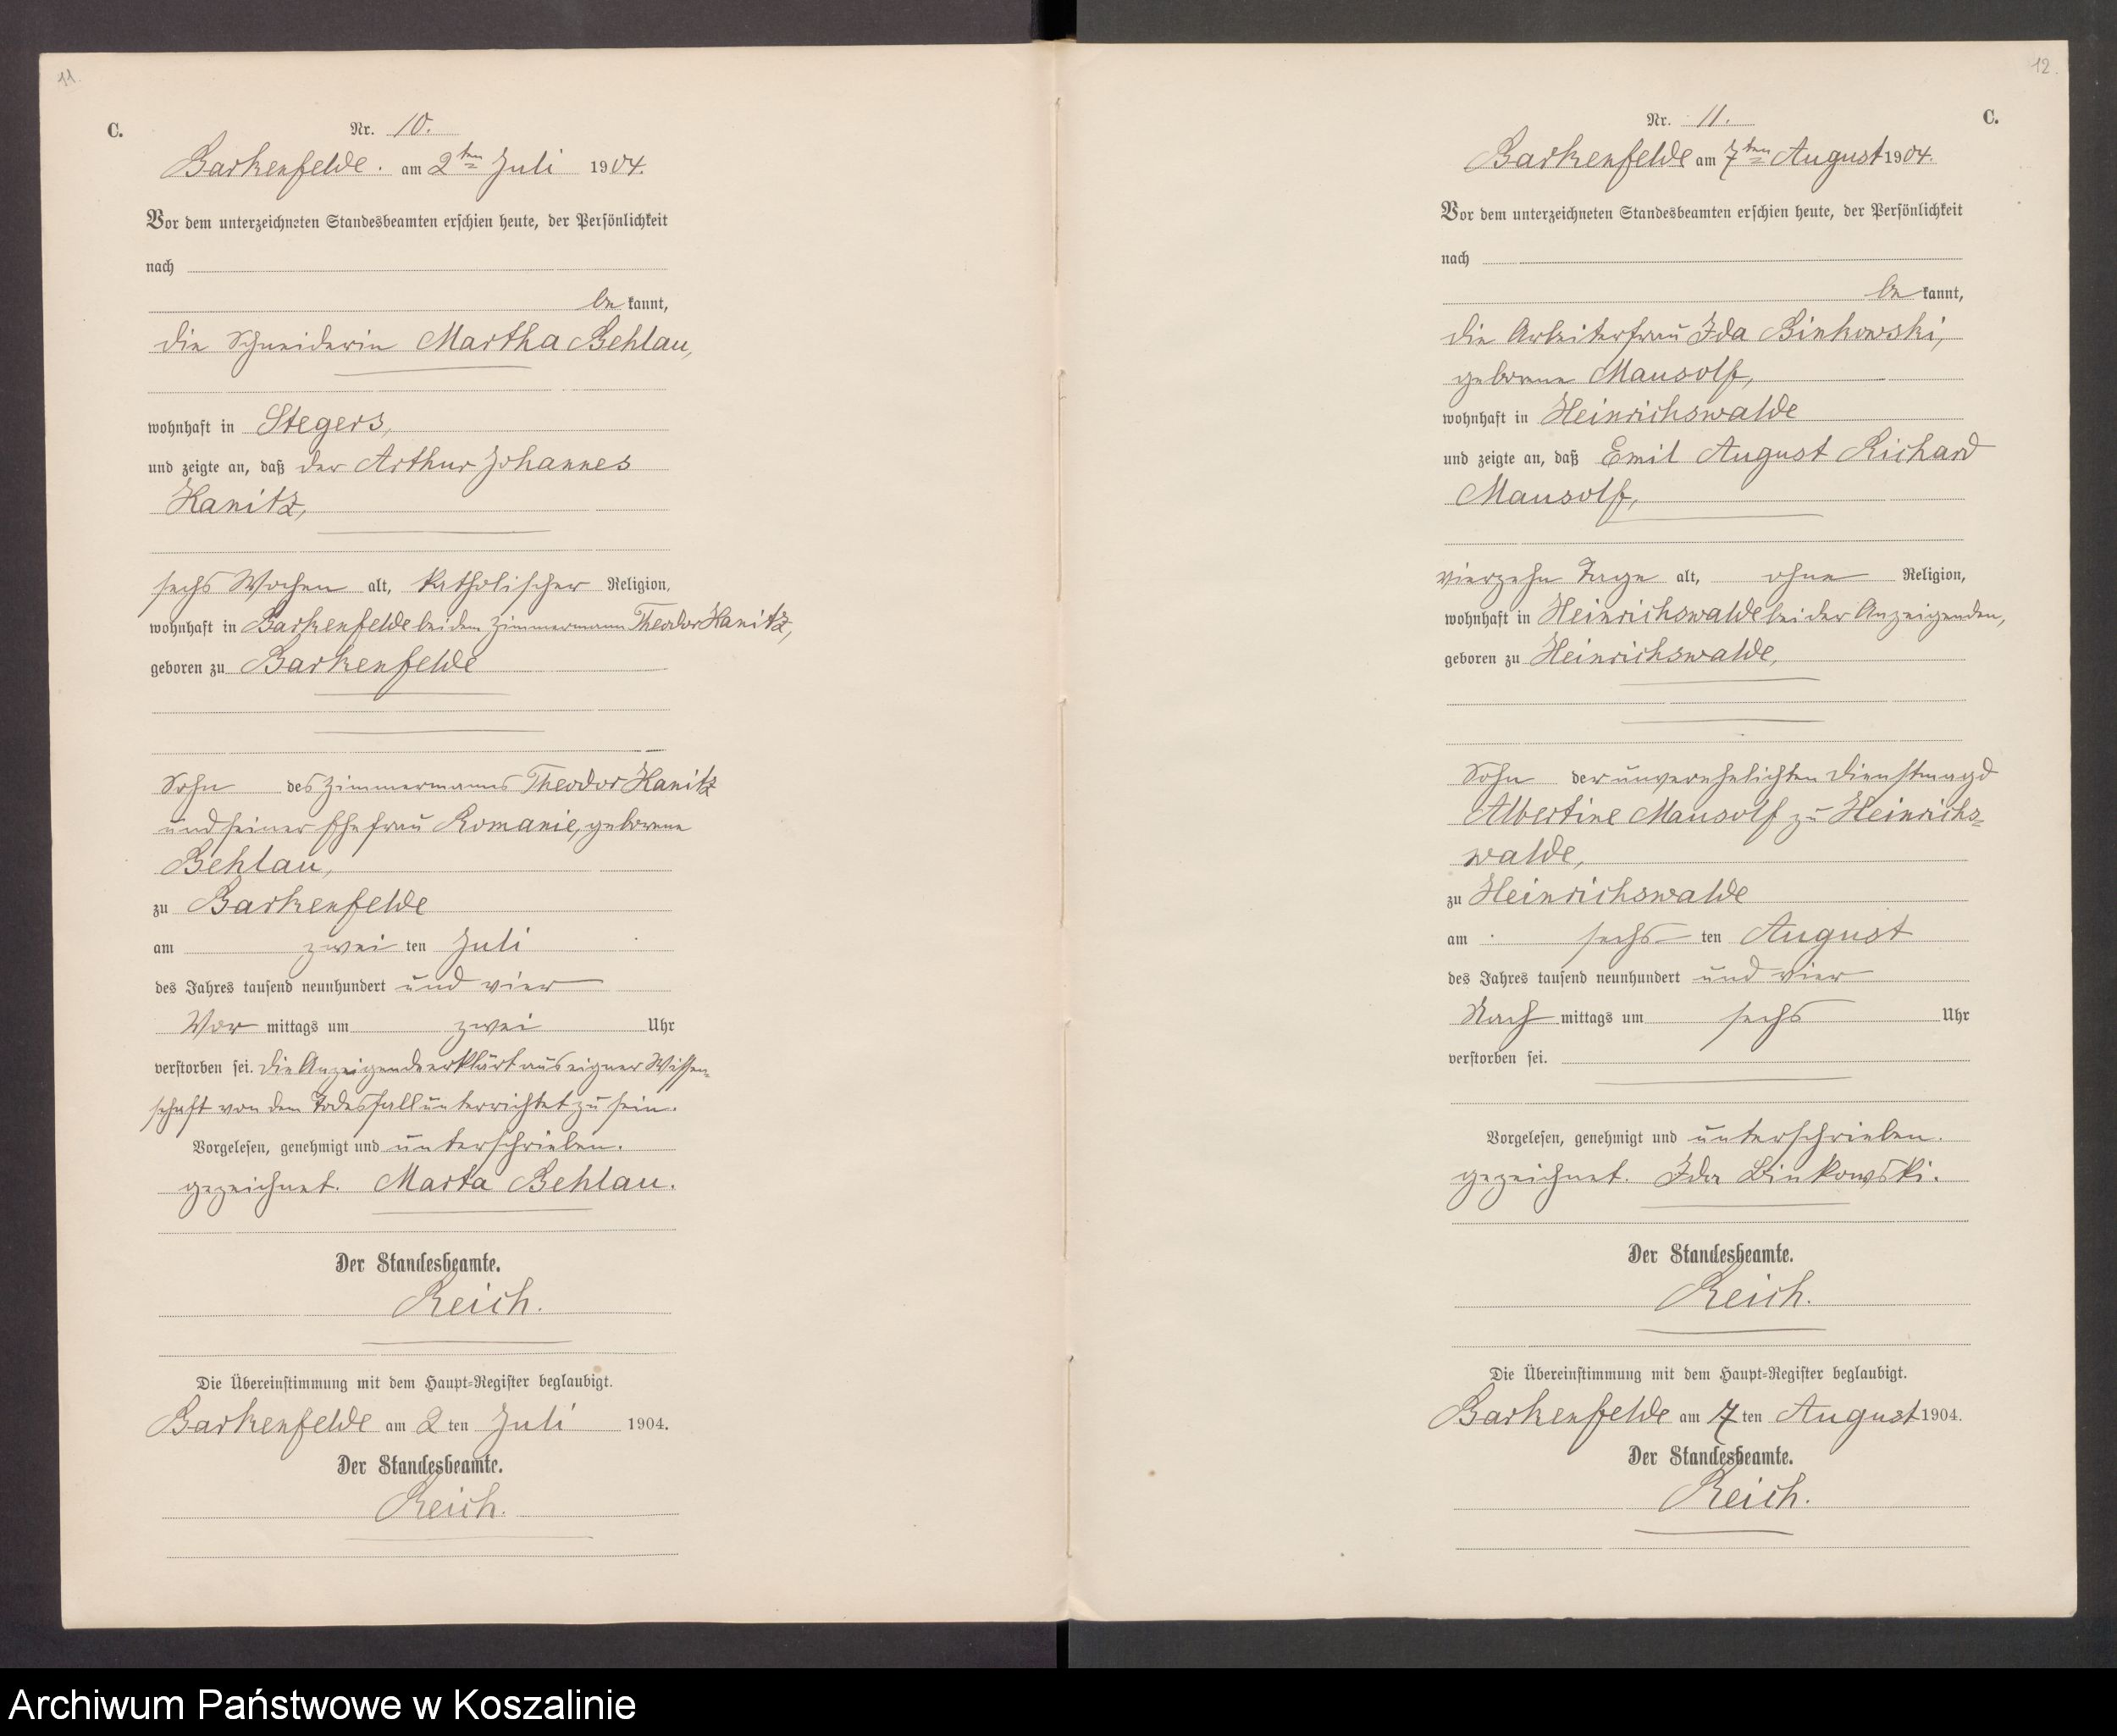 11.
C.
Nr. 10.
Barkenfelde. am 2ten Juli 1904.
Vor dem unterzeichneten Standesbeamten erschien heute, der Persönlichkeit
nach
be kannt,
die Schneiderin Martha Behlau,
wohnhaft in Stegers,
und zeigte an, daß der Arthur Johannes
Kanitz,
sechs Wochen alt, katholischer Religion,
wohnhaft in Barkenfelde bei dem Zimmermann Theodor Kanitz,
geboren zu Barkenfelde
Sohn des Zimmermanns Theodor Kanitz
und seiner Ehefrau Romanie, geborene
Behlau,
zu Barkenfelde
am zwei ten Juli
des Jahres tausend neunhundert und vier
Vor mittags um zwei Uhr
verstorben sei. Die Anzeigende erklärt aus eigner Wissen-
schaft von dem Todesfall unterrichtet zu sein.
Vorgelesen, genehmigt und unterschrieben.
gezeichnet. Marta Behlau.
Der Standesbeamte.
Reich.
Die Übereinstimmung mit dem Haupt-Register beglaubigt.
Barkenfelde am 2 ten Juli 1904.
Der Standesbeamte.
Reich.
12.
C.
Nr. 11.
Barkenfelde am 7ten August 1904.
Vor dem unterzeichneten Standesbeamten erschien heute, der Persönlichkeit
nach
be kannt,
die Arbeiterfrau Ida Binkowski,
geborene Mausolf,
wohnhaft in Heinrichswalde
und zeigte an, daß Emil August Richard
Mausolf,
vierzehn Tage alt, ohne Religion,
wohnhaft in Heinrichswalde bei der Anzeigenden,
geboren zu Heinrichswalde,
Sohn der unverehelichten Dienstmagd
Albertine Mausolf zu Heinrichs-
walde,
zu Heinrichswalde
am sechs ten August
des Jahres tausend neunhundert und vier
Nach mittags um sechs Uhr
verstorben sei.
Vorgelesen, genehmigt und unterschrieben.
gezeichnet. Ida Binkowski.
Der Standesbeamte.
Reich.
Die Übereinstimmung mit dem Haupt-Register beglaubigt.
Barkenfelde am 7 ten August 1904.
Der Standesbeamte.
Reich.
Archiwum Państwowe w Koszalinie